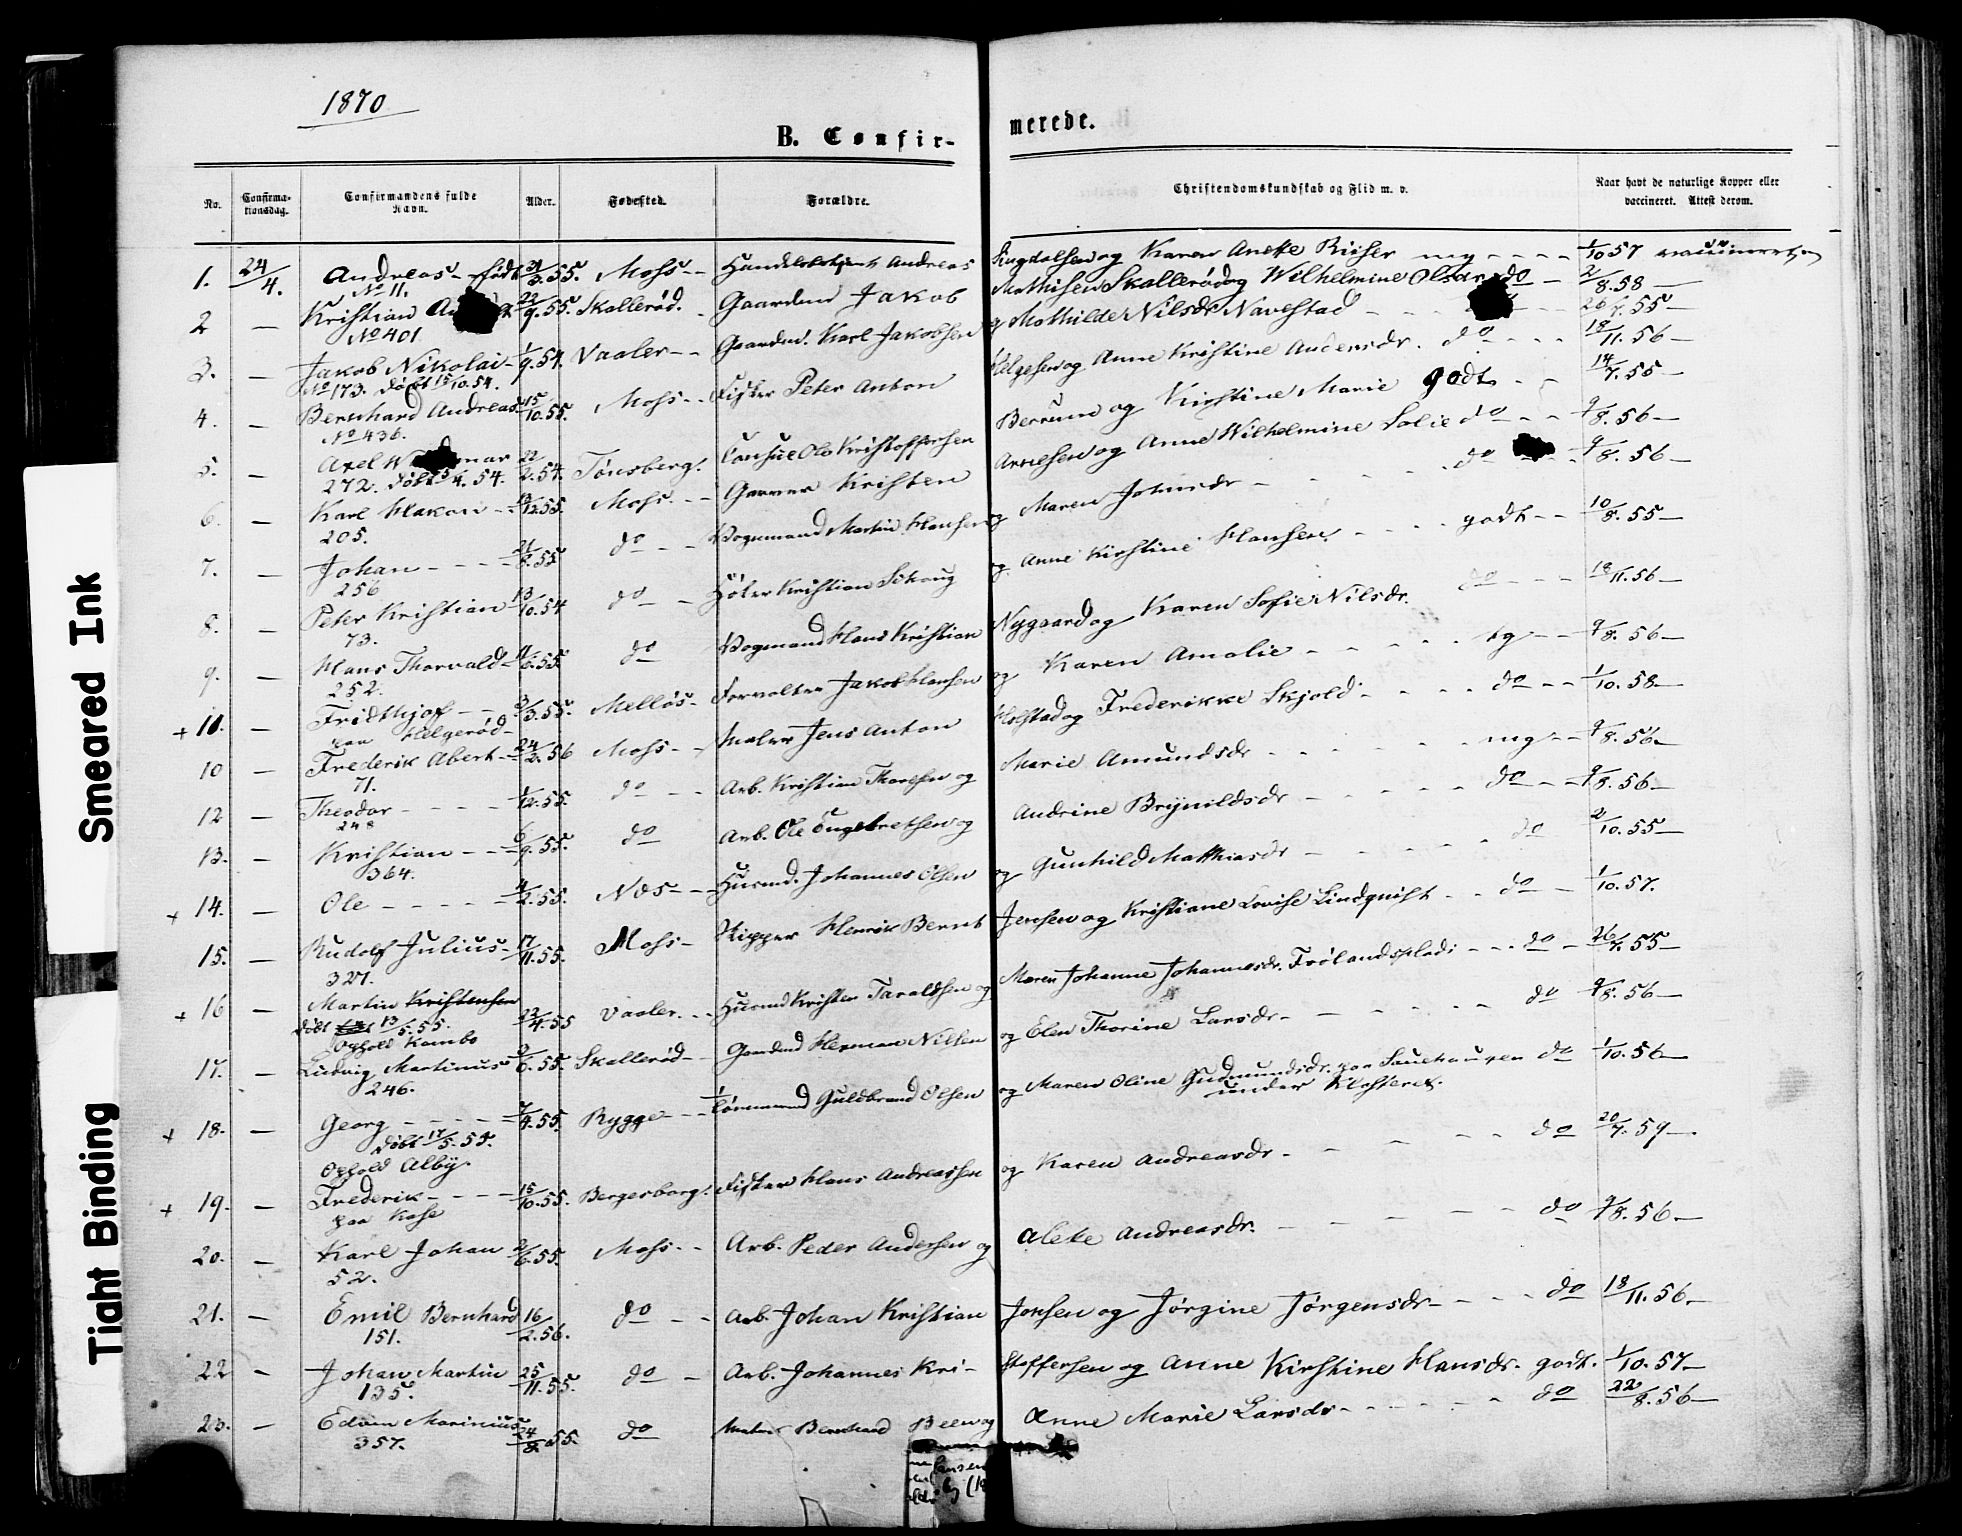 1870
B. Confir-
merede.
No.
Confirma-
tionsdag.
Confirmandens fulde
Navn.
Alder.
Fødested.
Forældre.
Christendomskundskab og Flid m. v.
Naar havt de naturlige Kopper eller
vaccineret. Attest derom.
1. 24/4. Andreas - født 31/3.55. Moss - - Andreas og Karen Anete Riiser mg - - - - 1/10 57
No 11.
2 — Kristian 22/9.55. Skallerød. - Gaardmd Jakob Mathisen Skallerød og Wilhelmine Olsen do - 2/8.58 —
No 401
3. — Jakob Nikolai - 1/9.54. Vaaler - - Gaardmd. Karl Jakobsen og Mathilde Nilsdr. Navestad - - - 26/7.55 —
No 173. døbt 15/10.54.
4. — Bernhard Andreas 15/10.55. Moss - - Fisker Peter Anton Helgesen og Anne Kristine Andersdr. do - - - - 18/11.56 —
No 436.
5. — Axel 22/2.54. Tønsberg. Ole Kristoffersen Berrum og Kirstine Marie godt - - 14/7.55 —
272. døbt 5/4.54.
6. — Karl Hakon - - 13/12.55. Moss - - Garver Kristen Arnesen og Anne Wilhelmine Solie do - - 9/8.56 —
205.
7. — Johan - - - - 21/8.55 do - - Vognmand Martin Hansen og Maren Johnsdr - - - - do - - 9/8.56 —
256
8. — Peter Kristian - 13/10.54 do - Kristian Schoug og Anne Kirstine Hansen. - - - godt - - 10/8.55 —
73.
9. — Hans Thorvald - 11/6.55 do Vognmand Hans Kristian Nygaard og Karen Sofie Nilsdr. do - - - 18/11.56 —
252.
+ 11. — Fridthjof - - 3/3.55. Melløs - Forvalter Jakob Hansen og Karen Amalie - - - - tg - - 9/8.56 —
paa Helgerød -
10 — Frederik Abert - 24/2.56 Moss - Maler Jens Anton Holstad og Frederikke Skjold - - - - do - - 1/10.58 —
71.
12 — Theodor - - - - 1/12.55. do - - Arb. Kristian Thoresen og Marie Amundsdr - - - - mg - - 9/8.56 —
248
13. — Kristian - - - 6/9.55. do Arb. Ole Engebretsen og Andrine Brynildsdr - - - - do - - 9/8.56 —
364.
+ 14. — Ole - - - - - 4/2.55. Næs - - - Husmd. Johannes Olsen og Gunhild Matthiasdr - - - - do 2/10.55 —
15. — Rudolf Julius - 17/11.55. Moss - Skipper Henrik Bernt Jensen og Kristiane Lovise Lindqvist - - do - 1/10.57.
327.
+ 16 — Martin Kristensen 22/4.55 Vaaler - - Husmd Kristen Taraldsen og Maren Johanne Johannesdr. Frølandsplads - - do - 26/7.55 —
døbt 13/5.55.
Ophold Kambo
17. — Ludvig Martinus 2/6.55 Skallerød - - Gaardmd Herman Nilsen og Elen Thorine Larsdr - - - - do 9/8.56 —
246.
+ 18. — Georg - - - - 7/4.55. Rygge - - - Guldbrand Olsen og Maren Oline Gudmundsdr. paa Sauehaugen do 1/10.56 —
under Klosteret.
døbt 17/5.55.
Ophold Alby.
+ 19. — Frederik - - - 15/10.55. Bergersborg. Fisker Hans Andreassen og Karen Andreasdr - - - - do 20/7.59 —
paa Kase
20. — Karl Johan 2/6.55 Moss - - Arb. Peder Andersen og Alete Andreasdr. - - - - do 9/8.56 —
52.
21. — Emil Bernhard 16/2.56. do - - Arb. Johan Kristian Jonsen og Jørgine Jørgensdr - - - - do 18/11.56 —
151.
22 — Johan Martin 25/11.55. do - Arb. Johannes Kri- stoffersen og Anne Kirstine Hansdr. godt. 1/10.57 —
135.
23. — Edvin Marinius 24/8.55. do Bernhard Been og Anne Marie Larsdr - - - - do 22/8.56 —
357.
Smeared Ink
Tight Binding